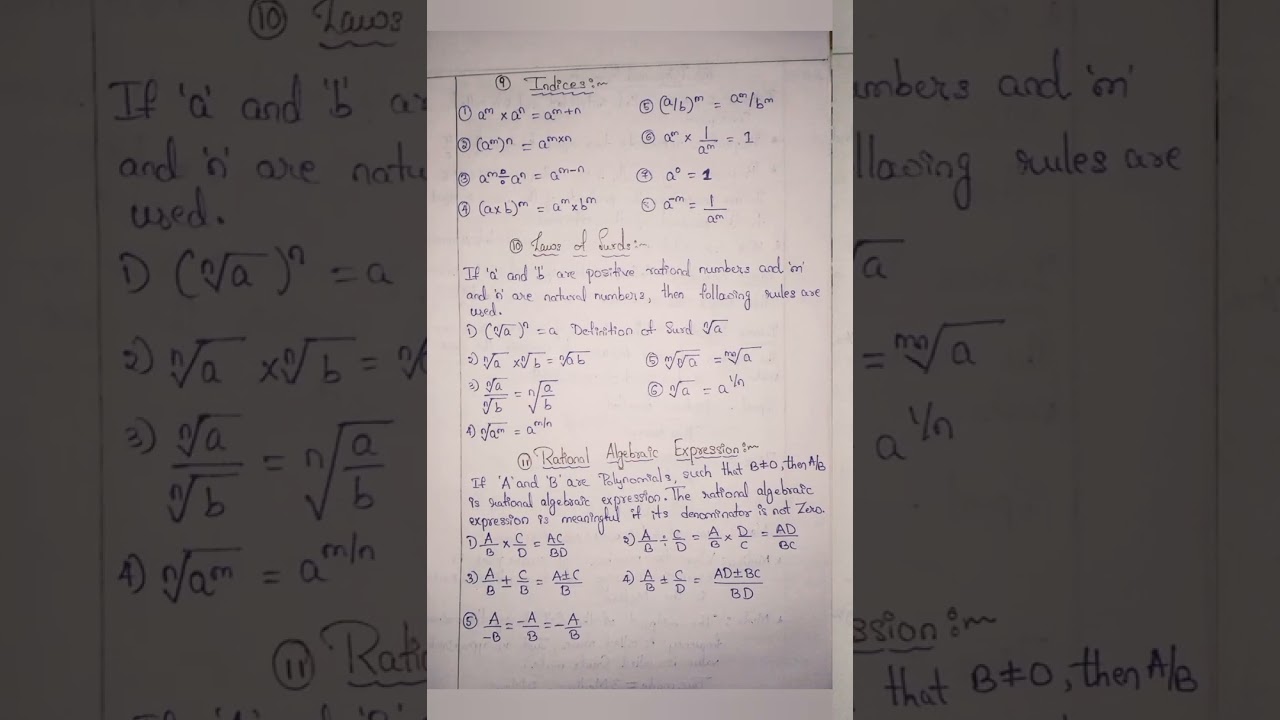 ⑨ Indices:~
① aᵐ × aⁿ = aᵐ⁺ⁿ ⑤ (a/b)ᵐ = aᵐ/bᵐ
② (aᵐ)ⁿ = aᵐˣⁿ ⑥ aᵐ × 1/aᵐ = 1
③ aᵐ ÷ aⁿ = aᵐ⁻ⁿ ⑦ a⁰ = 1
④ (a×b)ᵐ = aᵐ×bᵐ ⑧ a⁻ᵐ = 1/aᵐ
⑩ Laws of Surds:~
If 'a' and 'b' are positive rational numbers and 'm'
and 'n' are natural numbers, then follacing rules are
used.
1) (ⁿ√a)ⁿ = a Definition of Surd ⁿ√a
2) ⁿ√a × ⁿ√b = ⁿ√ab ⑤ ᵐ√ⁿ√a = ᵐⁿ√a
3) ⁿ√a/ⁿ√b = ⁿ√(a/b) ⑥ ⁿ√a = a^(1/n)
4) ⁿ√aᵐ = a^(m/n)
⑪ Rational Algebraic Expression:~
If 'A' and 'B' are Polynomials, such that B≠0, then A/B
is rational algebraic expression. The rational algebraic
expression is meaningful if its denominator is not Zero.
1) A/B × C/D = AC/BD 2) A/B ÷ C/D = A/B × D/C = AD/BC
3) A/B ± C/B = A±C/B 4) A/B ± C/D = AD±BC/BD
⑤ A/-B = -A/B = -A/B